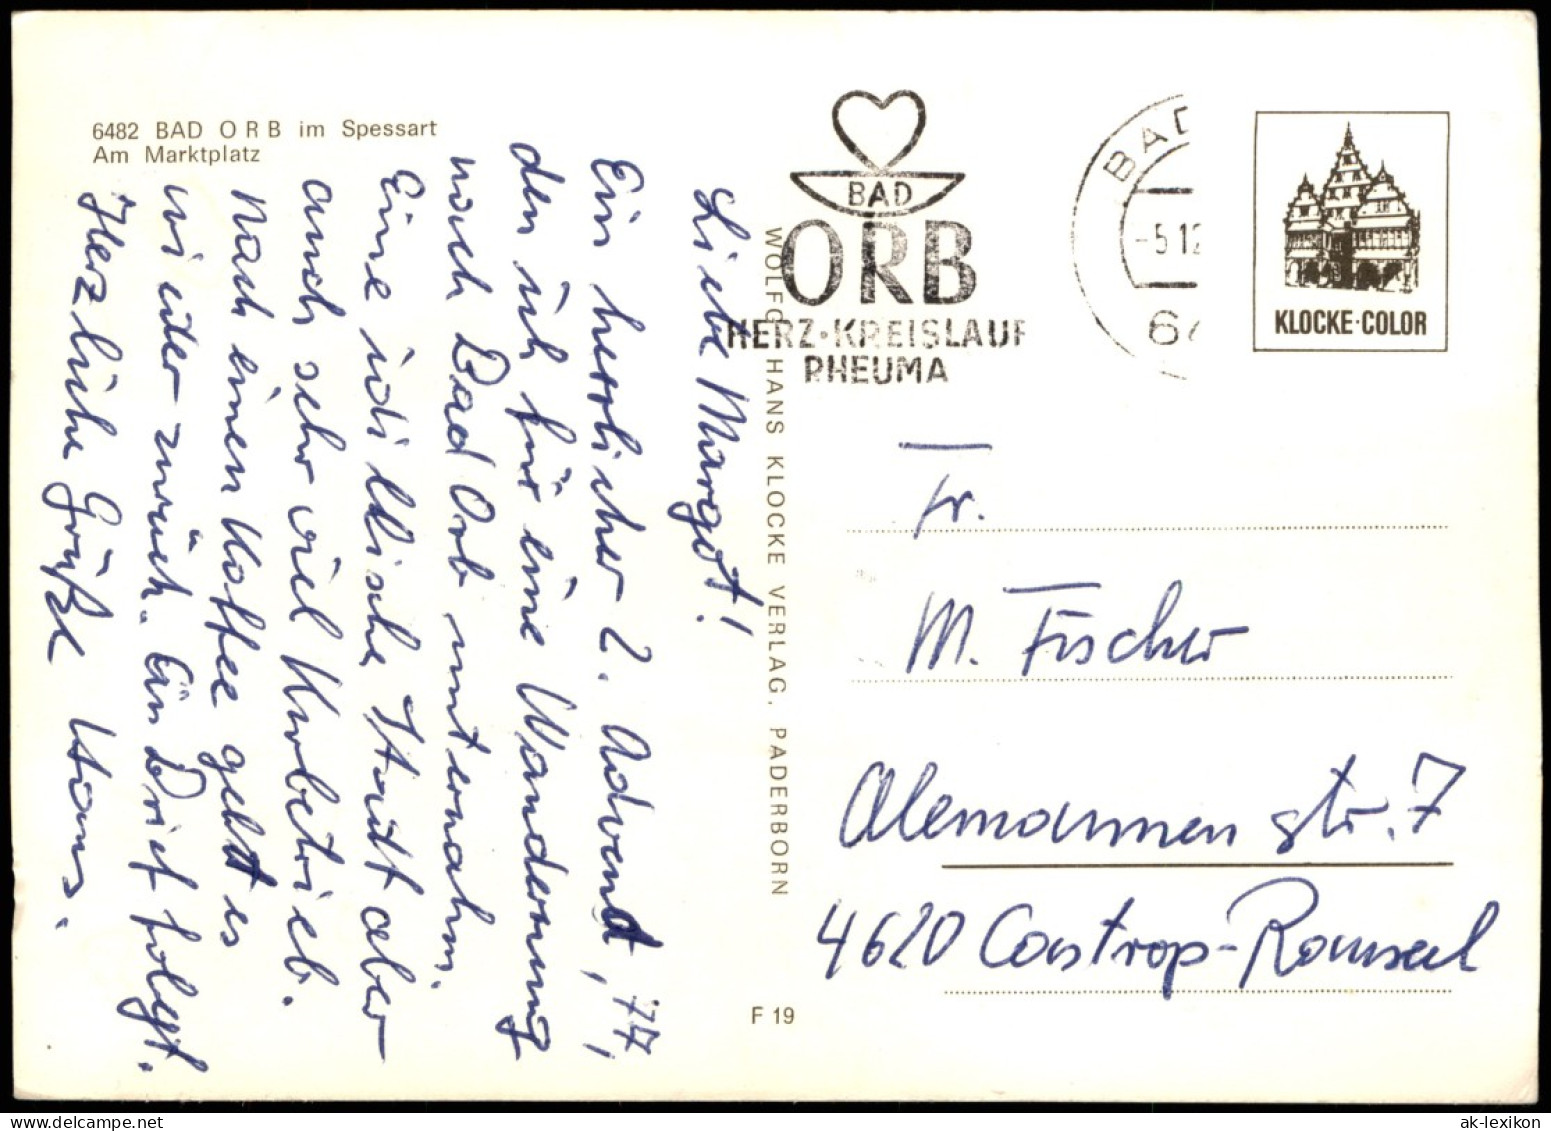 6482 BAD ORB im Spessart
Am Marktplatz
Liebe Margot!
Ein herrlicher 2. Advent, 77,
den ich für eine Wanderung
nach Bad Orb unternahm.
Eine idillische Stadt aber
auch sehr viel Kurbetrieb.
Nach einen Kaffee geht es
wieder zurück. Ein Brief folgt.
Herzliche Grüße Hans.
WOLFG HANS KLOCKE VERLAG, PADERBORN
F 19
BAD
ORB
HERZ·KREISLAUF
RHEUMA
BAD
-5.12
64
KLOCKE·COLOR
Fr.
M. Fischer
Alemannenstr. 7
4620 Castrop-Rauxel
ak-lexikon